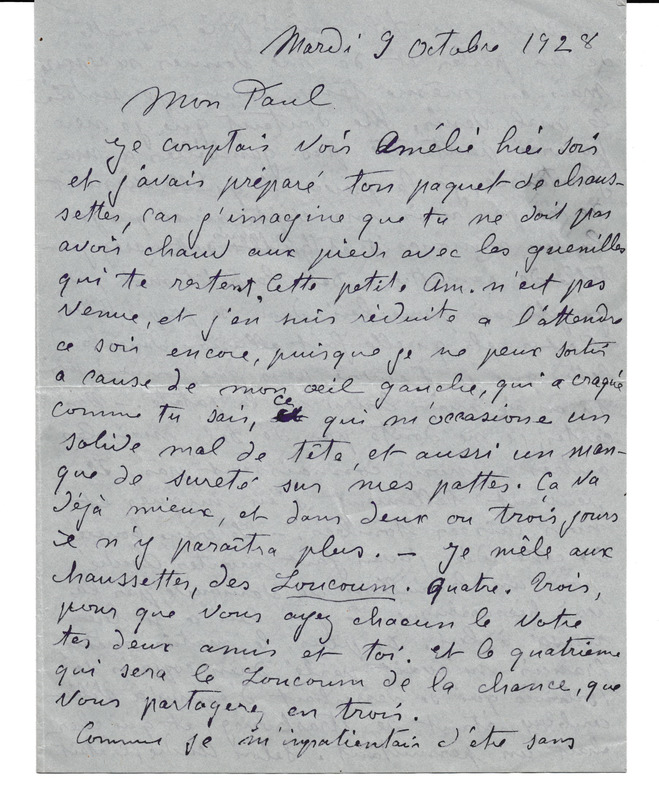 Mardi 9 Octobre 1928
Mon Paul
Je comptais voir Amélie hier soir
et j'avais préparé ton paquet de chaus-
settes, car j'imagine que tu ne doit pas
avoir chaud aux pieds avec les guenilles
qui te restent. Cette petite Am. n'est pas
venue, et j'en suis réduite a l'attendre
ce soir encore, puisque je ne peux sortir
a cause de mon œil gauche, qui a craqué
comme tu sais, ce qui m'occasione un
solide mal de tête, et aussi un man-
que de sureté sur mes pattes. Ça va
déjà mieux, et dans deux ou trois jours
Je n'y paraîtra plus. — Je mêle aux
chaussettes, des Loucoum. quatre. Trois,
pour que vous ayez chacun le votre
tes deux amis et toi. et le quatrième
qui sera le Loucoum de la chance, que
vous partagerez en trois.
Comme je m'impatientais d'être sans